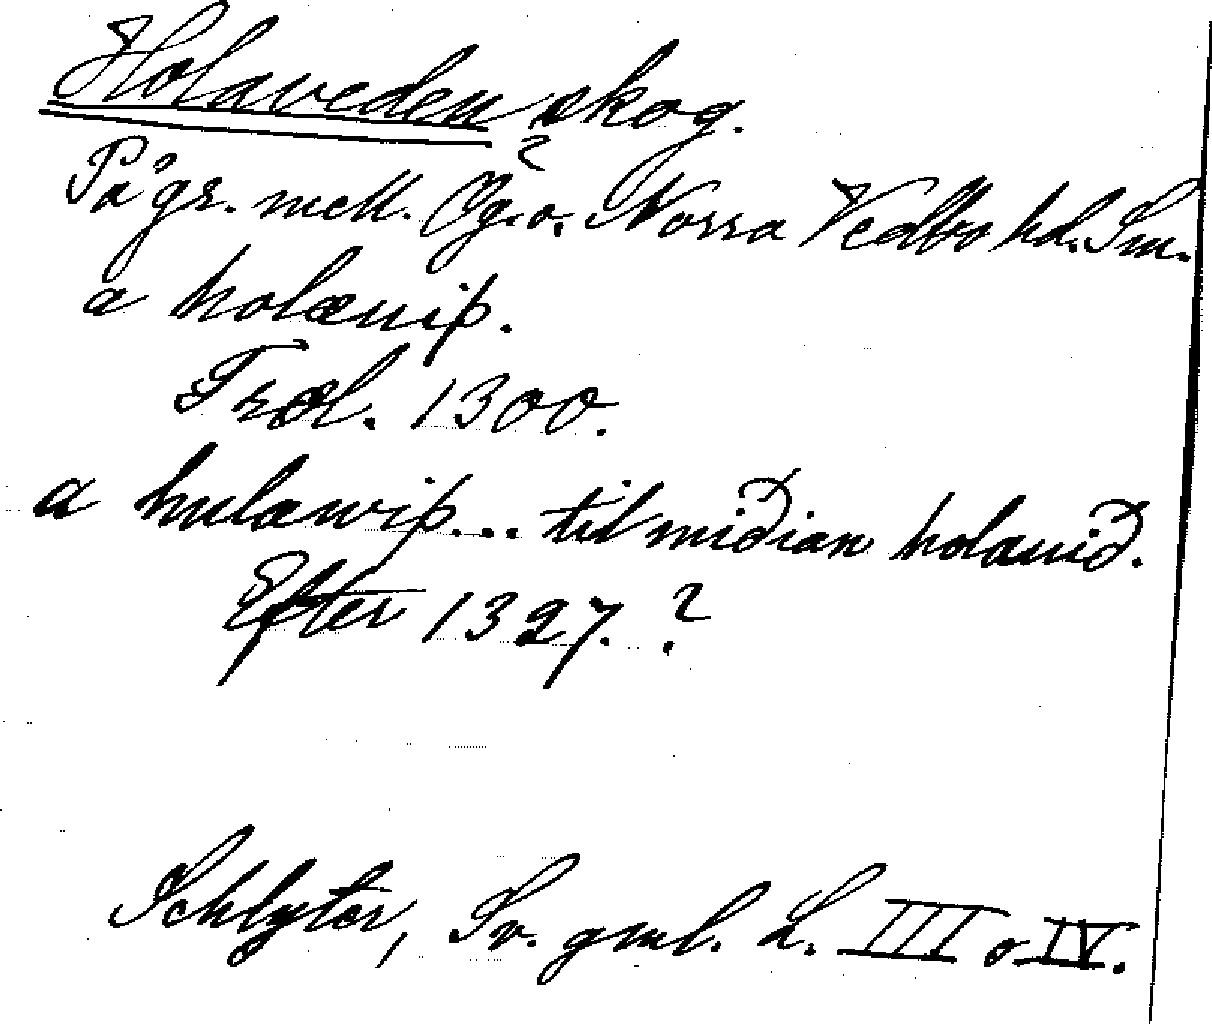 Holaveden, skog.
På gr. mell. Ög. o. Norra Vedbo hd. Sm.
a holæuiþ.
Træl. 1300.
a hulæwiþ... til miðian holauið.
Efter 1327. ?
Schlyter, Sv. gml. L. III o IV.